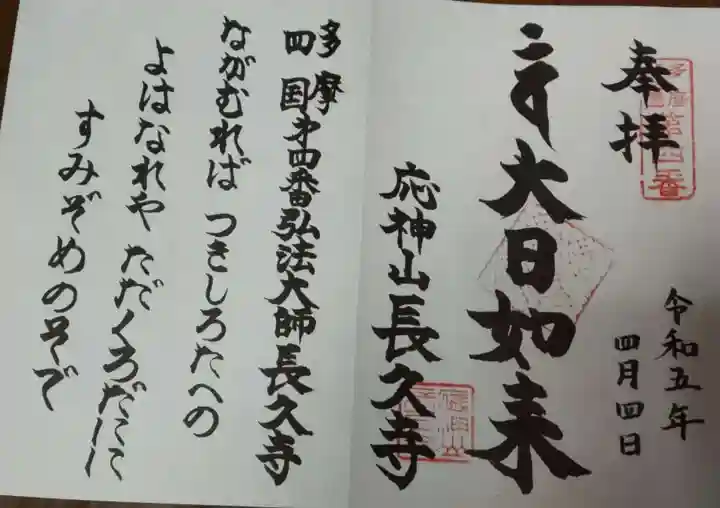 奉拝
令和五年
四月四日
大日如来
応神山長久寺
多摩
四国第四番弘法大師長久寺
ながむれば つきしろたへの
よはなれや ただくろだに
すみぞめのそで